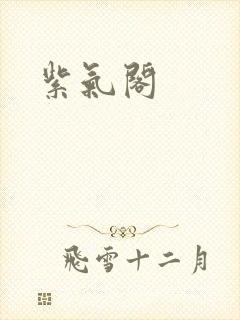 紫氣閣
飛雪十二月